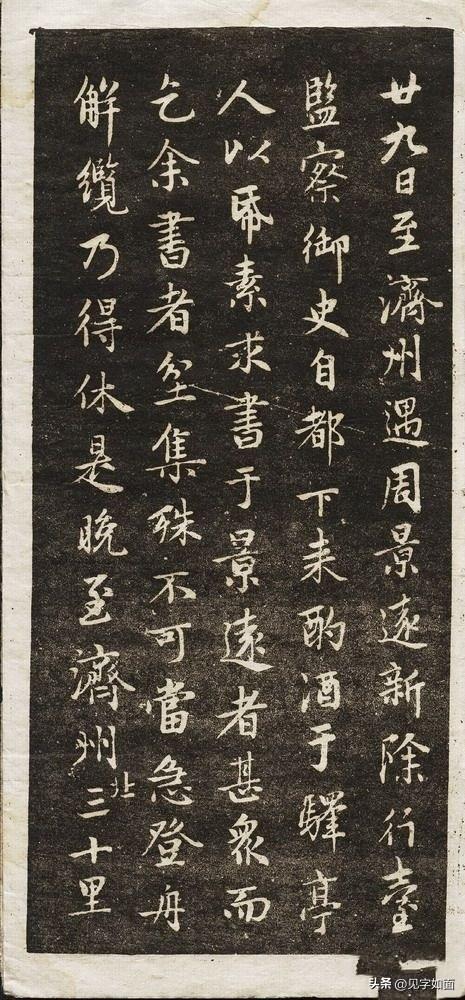 廿九日至濟州遇周景遠新除行臺
監察御史自都下来酌酒于驛亭
人以帋素求書于景遠者甚衆而
乞余書者坌集殊不可當急登舟
解纜乃得休是晚至濟州北三十里
头条 @见字如面